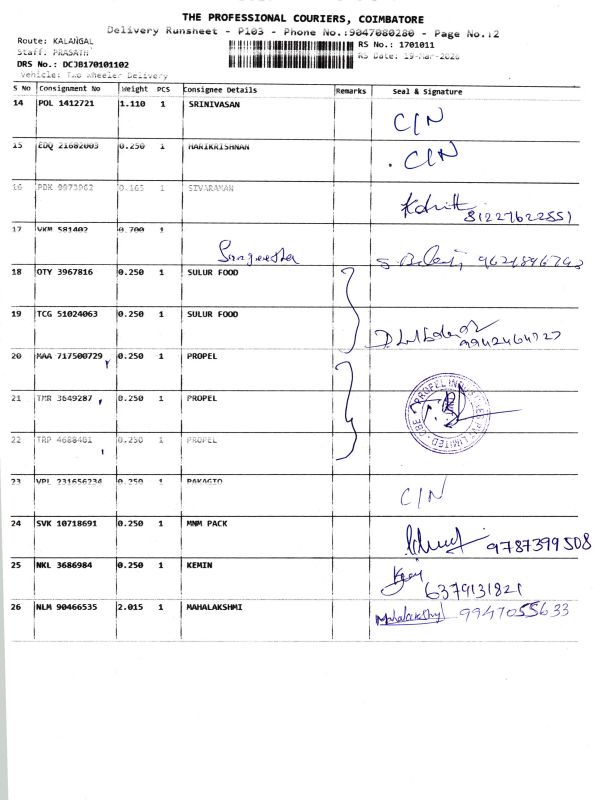 THE PROFESSIONAL COURIERS, COIMBATORE
Delivery Runsheet - P103 - Phone No.:9047080280 - Page No.:2
Route: KALANGAL
Staff: PRASATH
RS No.: 1701011
DRS No.: DCJB170101102
RS Date: 19-Mar-2026
Vehicle: Two Wheeler Delivery
S No Consignment No Weight PCS Consignee Details Remarks Seal & Signature
14 POL 1412721 1.110 1 SRINIVASAN C/N
15 EDQ 21682003 0.250 1 HARIKRISHNAN C/N
16 PDK 9973962 0.165 1 SIVARAMAN 81227622551
17 VKM 581402 0.700 1 Sangeetha
18 OTY 3967816 0.250 1 SULUR FOOD
19 TCG 51024063 0.250 1 SULUR FOOD
20 MAA 717500729 0.250 1 PROPEL
21 TMR 3649287 0.250 1 PROPEL
22 TRP 4688461 0.250 1 PROPEL
23 VPL 231656234 0.250 1 PAKAGIO C/N
24 SVK 10718691 0.250 1 MNM PACK 9787399508
25 NKL 3686984 0.250 1 KEMIN 6379131821
26 NLM 90466535 2.015 1 MAHALAKSHMI Mahalakshmi 9947055633